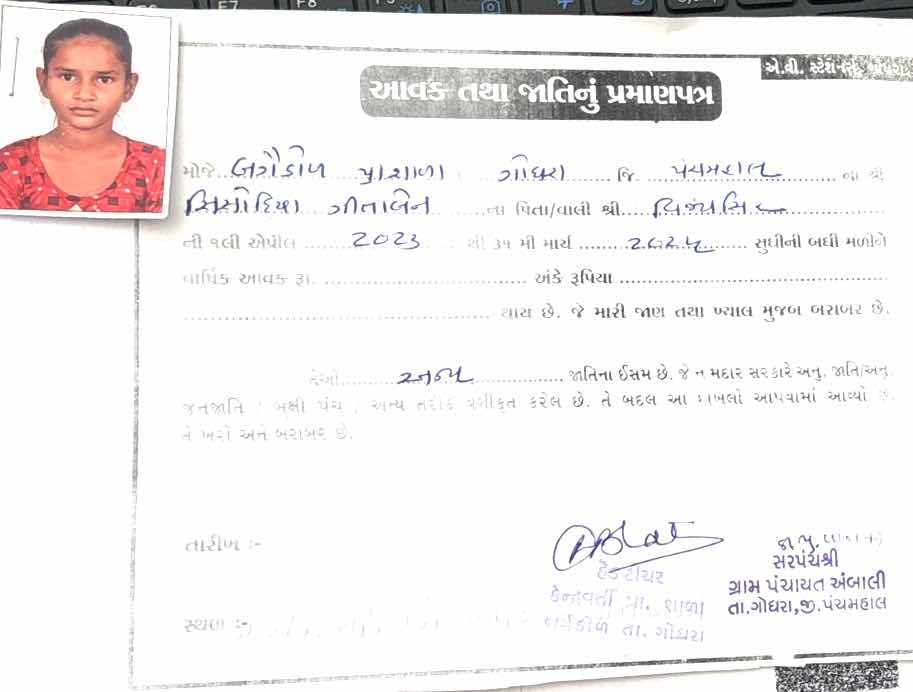 એ.વી. સ્ટેશનર્સ,
આવક તથા જાતિનું પ્રમાણપત્ર
મોજે.. બગીડોળ પ્રાશાળા ગોધરા ..... જિ. પંચમહાલ ............ ના શ્રી
સિસોદિયા ગીતાબેન ના પિતા/વાલી શ્રી....
ની ૧લી એપ્રીલ ......... 2023 થી ૩૧ મી માર્ચ ....... ૨૦૨૫ ..... સુધીની બધી મળીને
વાર્ષિક આવક રૂા. ................................ અંકે રૂપિયા ........................................
.............................................. થાય છે. જે મારી જાણ તથા ખ્યાલ મુજબ બરાબર છે.
તેઓ........ અન્ય ............. જાતિના ઈસમ છે. જે ન મદાર સરકારે અનુ. જાતિ/અનુ.
જનજાતિ / બક્ષી પંચ / અન્ય તરીકે વર્ગીકૃત કરેલ છે. તે બદલ આ દાખલો આપવામાં આવ્યો છે.
તે ખરો અને બરાબર છે.
તારીખ :-
હેડ ટીચર
કેન્દ્રવર્તી પ્રા. શાળા
તા. ગોધરા
સરપંચશ્રી
ગ્રામ પંચાયત અંબાલી
તા.ગોધરા,જી.પંચમહાલ
સ્થળ :-